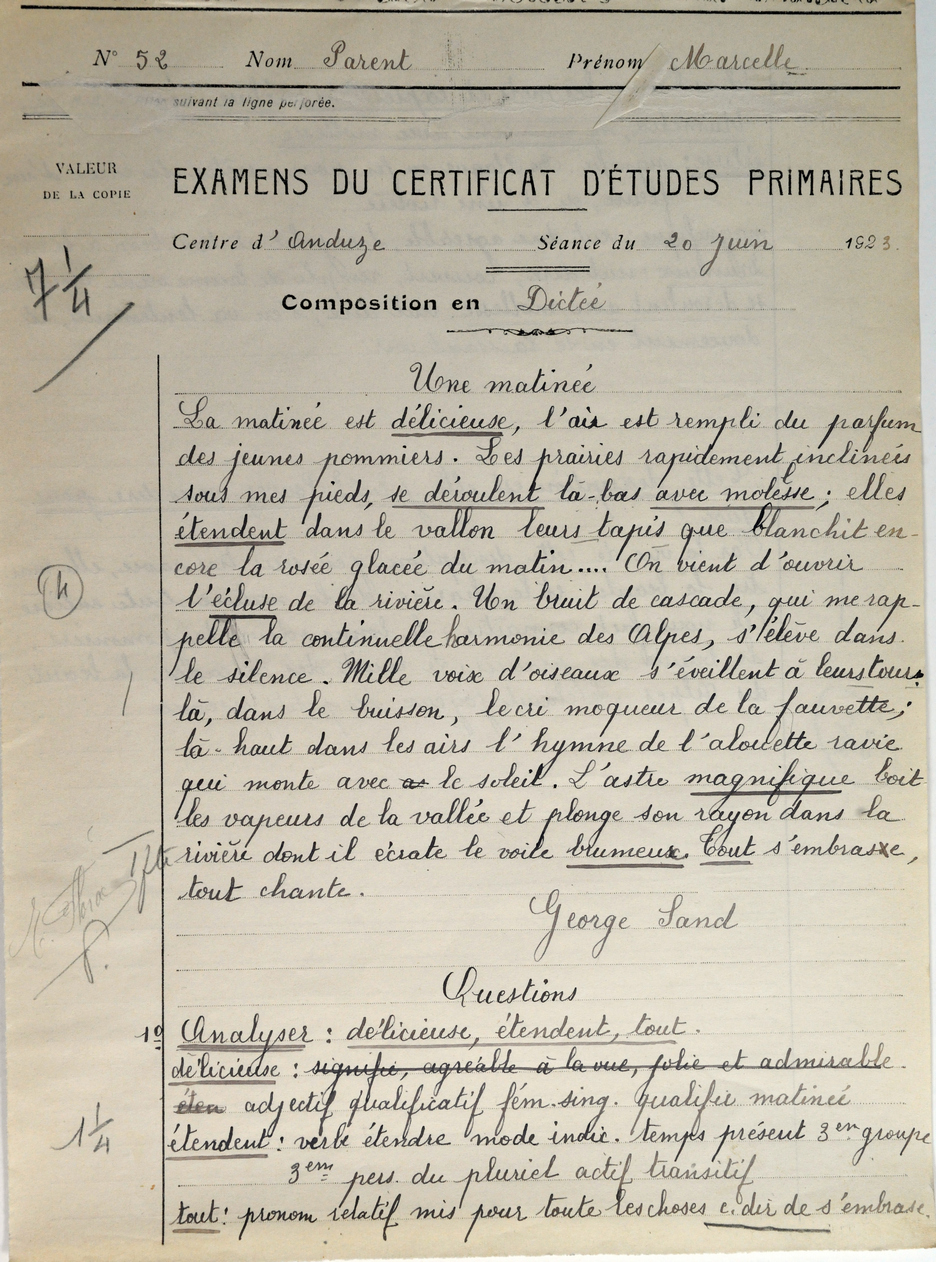 N° 52 Nom Parent Prénom Marcelle
suivant la ligne perforée.
VALEUR
DE LA COPIE
EXAMENS DU CERTIFICAT D'ÉTUDES PRIMAIRES
Centre d'Anduze Séance du 20 Juin 1923.
7 1/4
Composition en Dictée
Une matinée
La matinée est délicieuse, l'air est rempli du parfum
des jeunes pommiers. Les prairies rapidement inclinées
sous mes pieds, se déroulent là-bas avec molesse; elles
étendent dans le vallon leurs tapis que blanchit en-
core la rosée glacée du matin.... On vient d'ouvrir
(4)
l'écluse de la rivière. Un bruit de cascade, qui me rap-
pelle la continuelle harmonie des Alpes, s'élève dans
le silence. Mille voix d'oiseaux s'éveillent à leurs tour.
là, dans le buisson, le cri moqueur de la fauvette;
là-haut dans les airs l'hymne de l'alouette ravie
qui monte avec le soleil. L'astre magnifique boit
les vapeurs de la vallée et plonge son rayon dans la
rivière dont il écrate le voile brumeux. Tout s'embrase,
tout chante.
George Sand
Questions
1º Analyser : délicieuse, étendent, tout.
délicieuse : signifie, agréable à la vue, jolie et admirable
éten adjectif qualificatif fém. sing. qualifie matinée
1 1/4
étendent : verbe étendre mode indic. temps présent 3em groupe
3em pers. du pluriel actif transitif
tout : pronom relatif mis pour toute les choses c. dir de s'embrase.